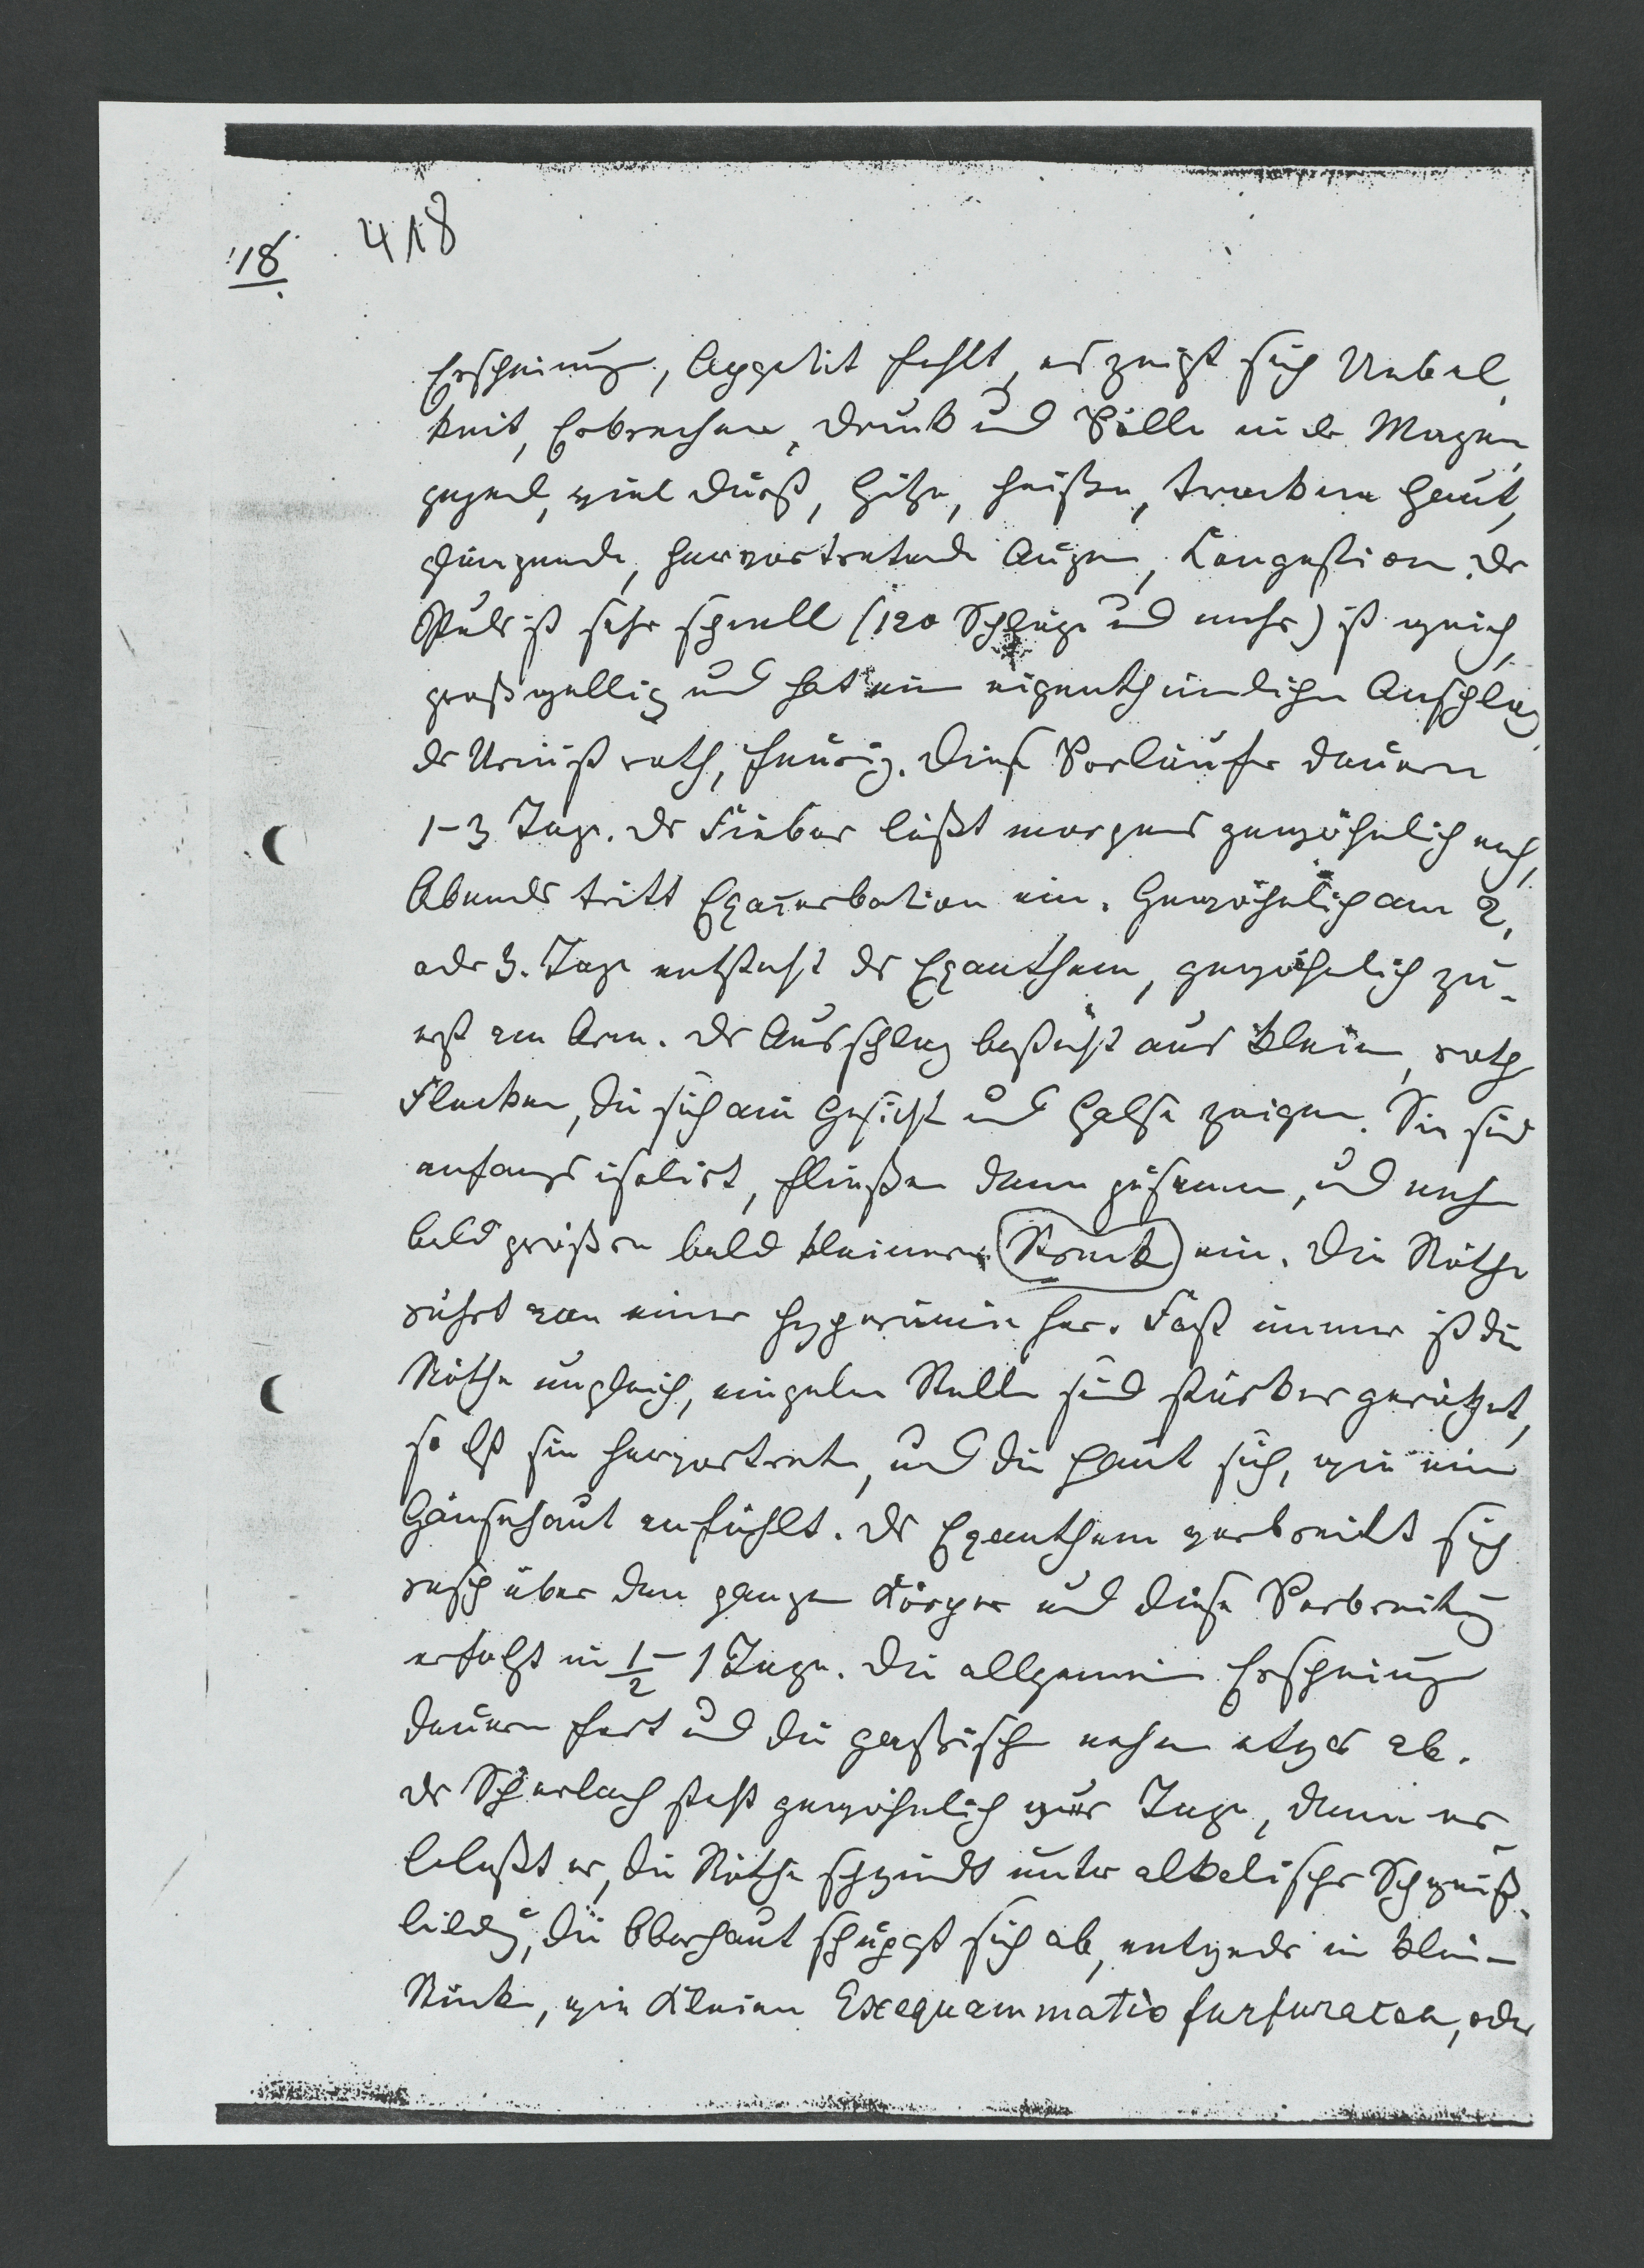 418
18
Erscheinung, Appetit fehlt, es zeigt sich Uebel
keit, Erbrechen, Druck und Völle in der Magen
gegend, viel Durst, Hitze, heiße, trockene Haut,
glänzende, hervortretende Augen, Kongestion. Der
Puls ist sehr schnell (120 Schläge und mehr) ist weich,
großwellig und hat ein eigenthümlichen Anschlag,
der Urin ist roth, feurig. Diese Vorläufer dauern
1-3 Tage. Das Fieber läßt morgens gewöhnlich nach,
Abends tritt Exacerbation ein. Gewöhnlich am 2.
oder 3. Tage entsteht das Exanthem, gewöhnlich zu-
erst am Arm. Der Ausschlag besteht aus klein, roth
Flecken, die sich am Gesicht und Halse zeigen. Sie sind
anfangs isolirt, fließen dann zusammen, und nehm
bald größere bald kleinere Streck ein. Die Röthe
rührt von einer Hyperämie her. Fast immer ist die
Röthe ungleich, einzelne Stelle sind stärker geröthet,
so daß sie hervortreten, und die Haut sich, wie ein
Gänsehaut anfühlt. Das Exanthem verbreitet sich
rasch über den ganzen Körper und diese Verbreitung
erfolgt in 1/2 - 1 Tage. Die allgemein Erscheinung
dauern fort und die gastrisch nehm etwas ab.
Der Scharlach steht gewöhnlich Tage, dann er-
blaßt er, die Röthe schwindt unter alkalischer Schweiß-
bildg, die Oberhaut schuppt sich ab, entweder in klein
Stücke, wie Kleien Exequammatio furfuracea, oder